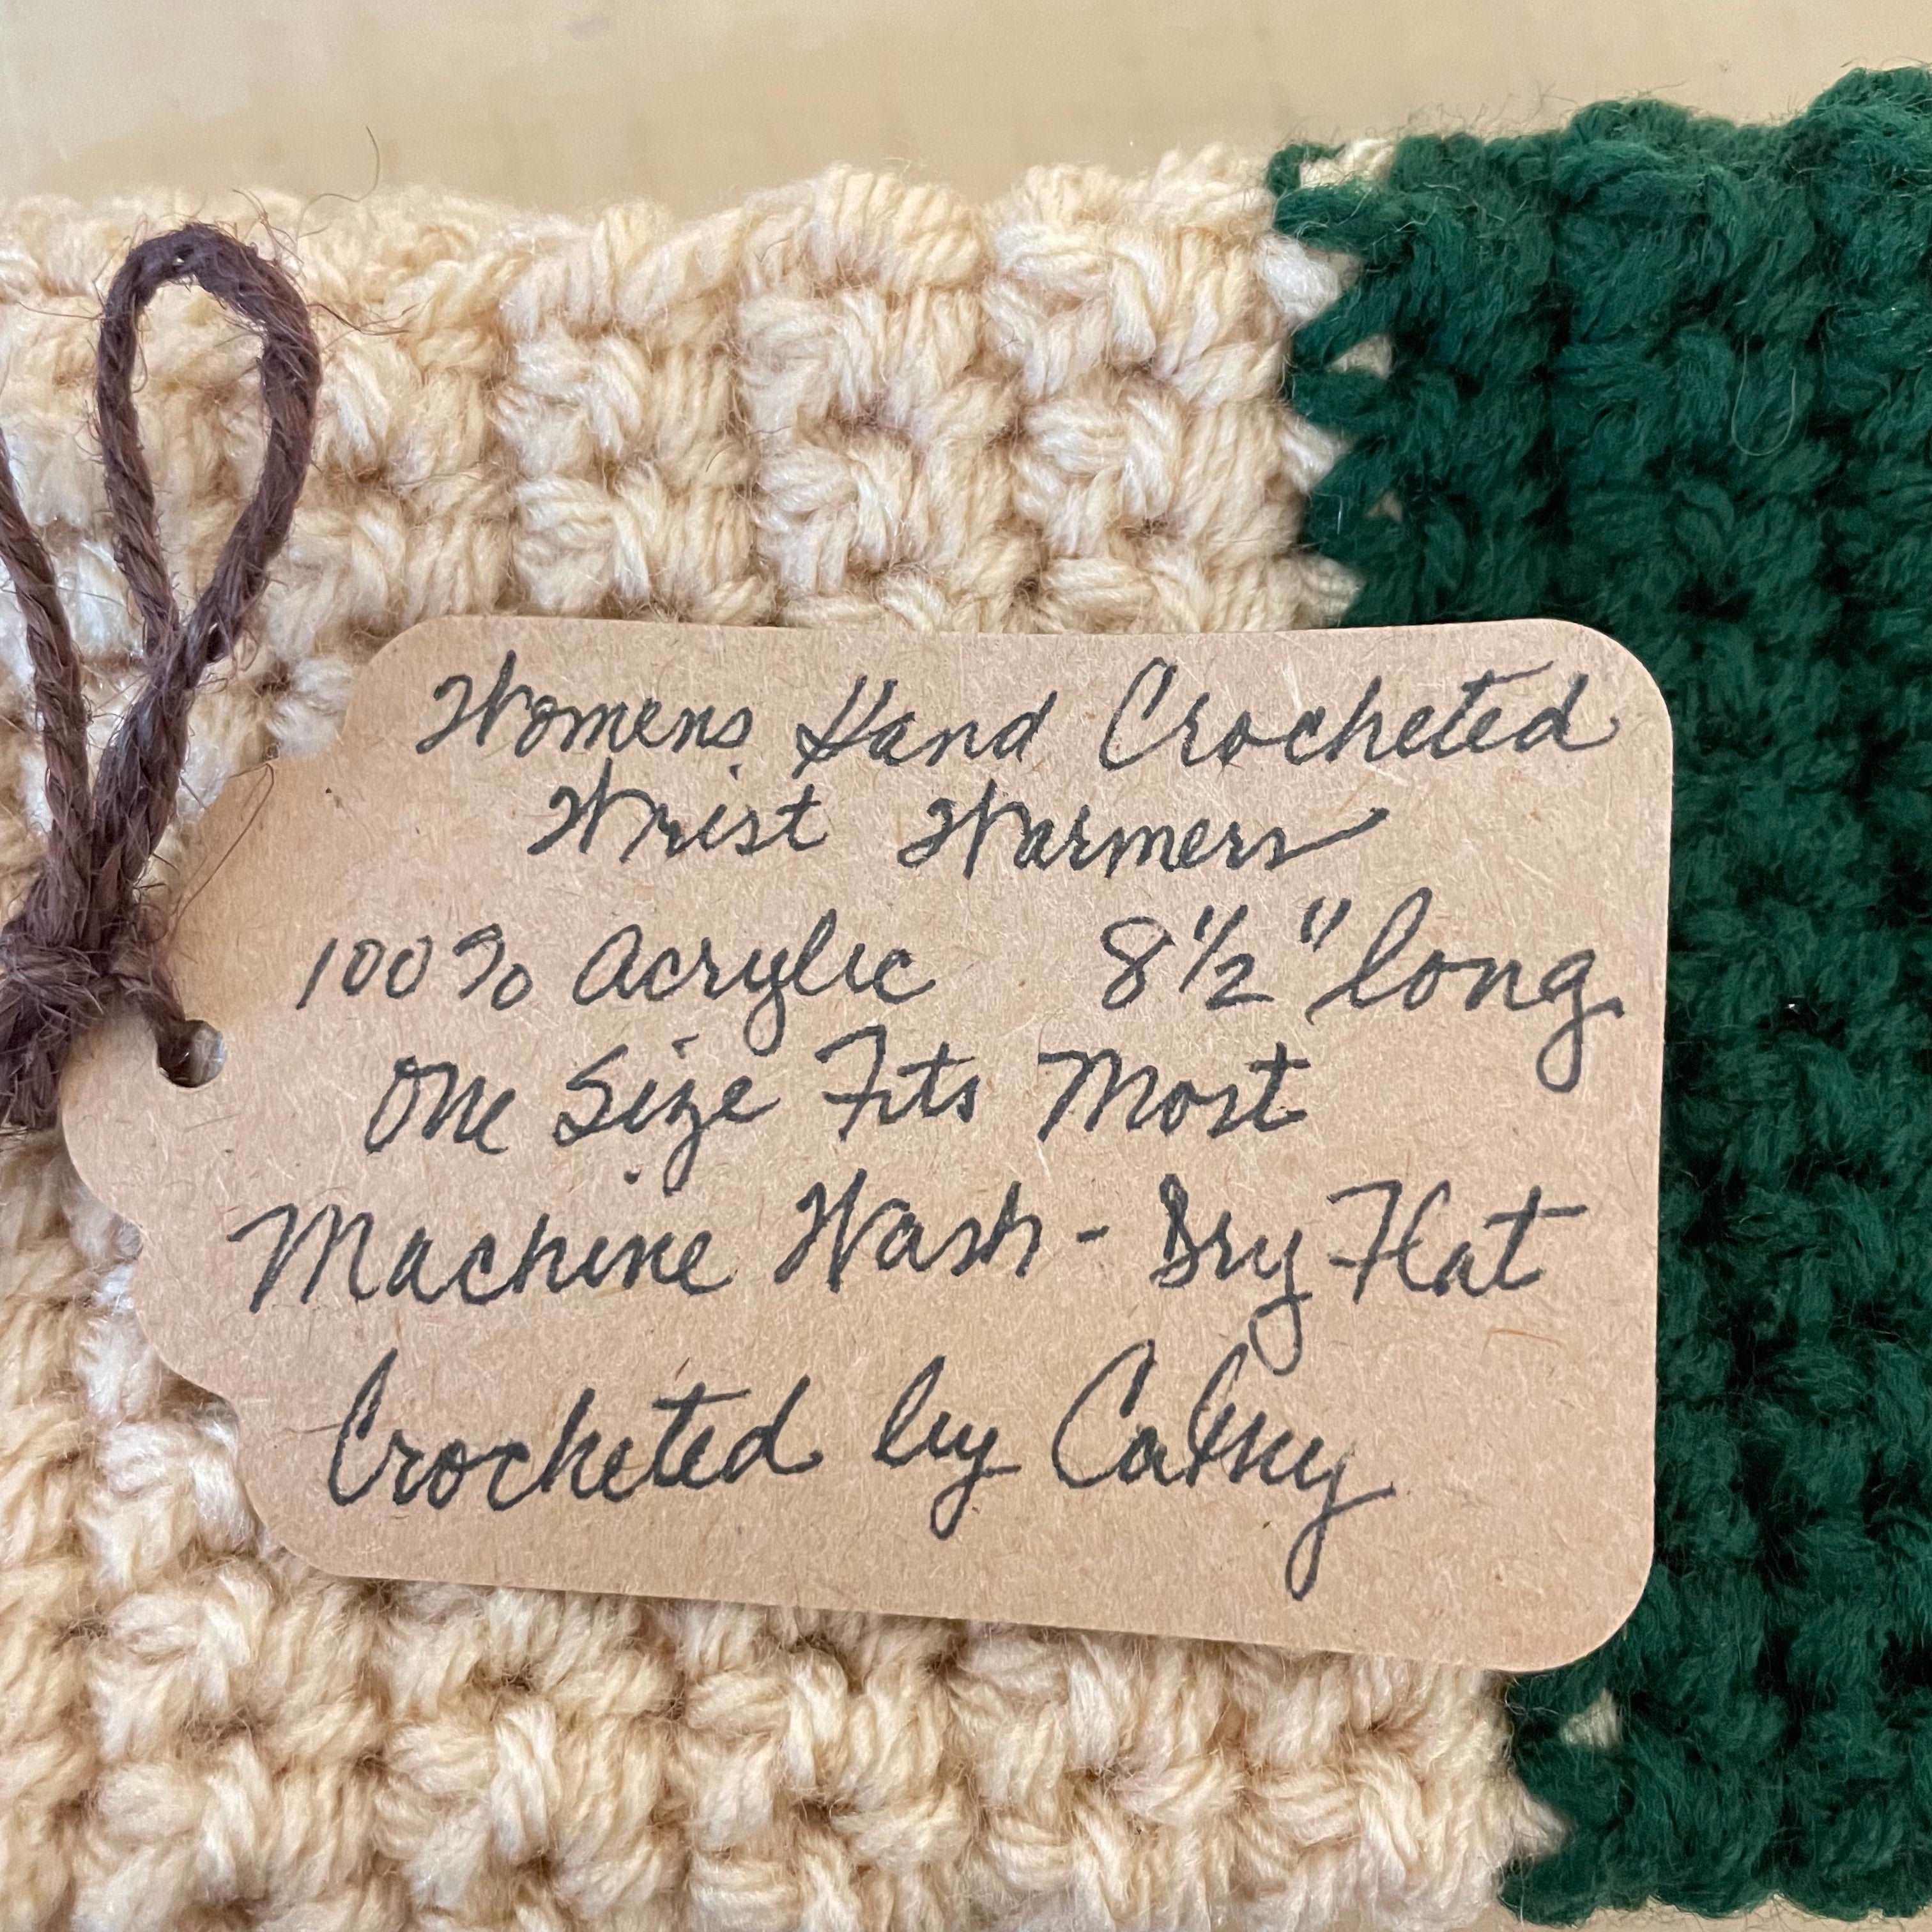 Womens Hand Crocheted
Wrist Warmers
100% Acrylic 8 1/2" long
One Size Fits Most
Machine Wash - Dry Flat
Crocheted by Cathy